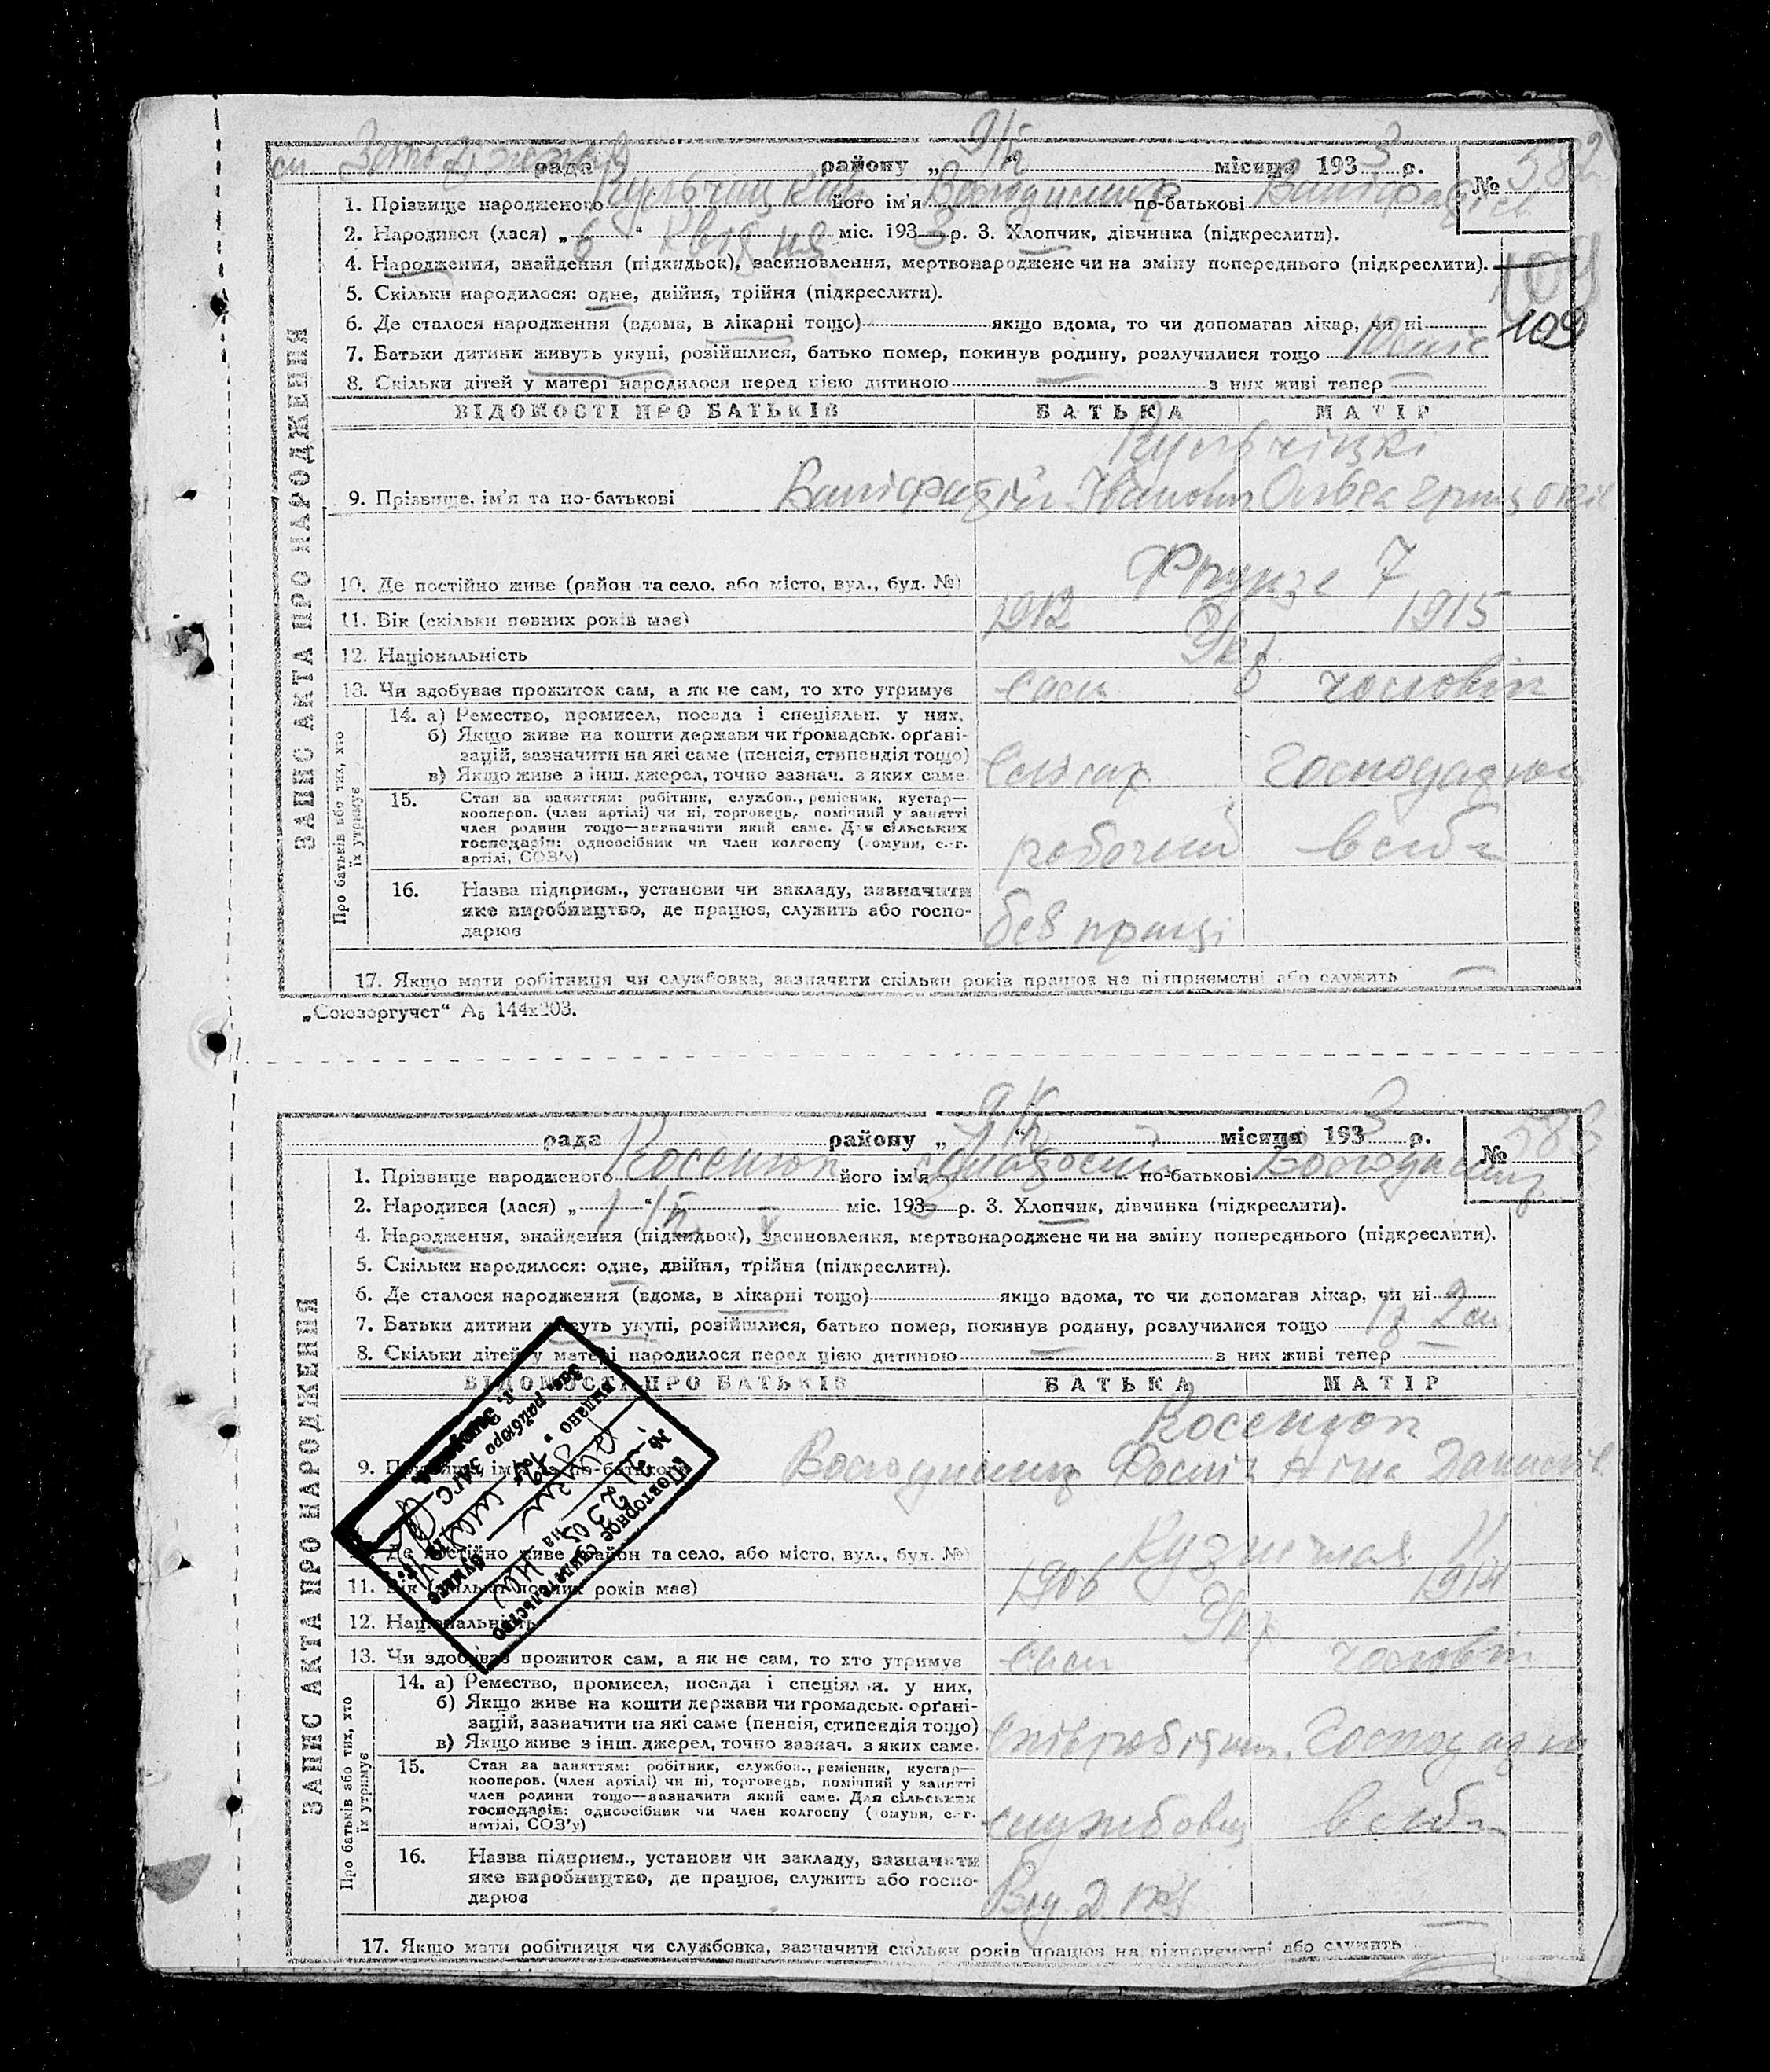 рада району „ 9/V “ місяця 193 3 р. № 382
1. Прізвище народженого Кульчицкий його ім'я Володимир по-батькові
2. Народився (лася) „ 6 “ Квітня міс. 193 3 р. 3. Хлопчик, дівчинка (підкреслити).
4. Народження, знайдення (підкидьок), засиновлення, мертвонароджене чи на зміну попереднього (підкреслити).
5. Скільки народилося: одне, двійня, трійня (підкреслити).
109
6. Де сталося народження (вдома, в лікарні тощо) якщо вдома, то чи допомагав лікар, чи ні
7. Батьки дитини живуть укупі, розійшлися, батько помер, покинув родину, розлучилися тощо
8. Скільки дітей у матері народилося перед цією дитиною — з них живі тепер —
ВІДОМОСТІ ПРО БАТЬКІВ БАТЬКА МАТІР
Кульчіцкі
9. Прізвище, ім'я та по-батькові Іванович Ольга
10. Де постійно живе (район та село, або місто, вул., буд. №) Фрунзе 7
11. Вік (скільки повних років має) 1912 1915
12. Національність Укр
13. Чи здобуває прожиток сам, а як не сам, то хто утримує сам чоловік
14. а) Ремество, промисел, посада і спеціяльн. у них.
б) Якщо живе на кошти держави чи громадськ. орґані-
зацій, зазначити на які саме (пенсія, стипендія тощо)
в) Якщо живе з інш. джерел, точно зазнач. з яких саме. Слюсар Господарює
15. Стан за заняттям: робітник, службов., ремісник, кустар—
кооперов. (член артілі) чи ні, торговець, помічний у занятті
член родини тощо—зазначити який саме. Для сільських
господарів: одноосібник чи член колгоспу (комуни, с.-г.
артілі, СОЗ'у) робочий вдома
16. Назва підприєм., установи чи закладу, зазначити
яке виробництво, де працює, служить або госпо-
дарює без праці
17. Якщо мати робітниця чи службовка, зазначити скільки років працює на підприємстві або служить —
ЗАПИС АКТА ПРО НАРОДЖЕННЯ
Про батьків або тих, хто
їх утримує
„Союзоргучет“ А5 144х203.
рада району „ 9/V “ місяця 193 3 р. № 383
1. Прізвище народженого Косенюк його ім'я по-батькові Володимир
2. Народився (лася) „ 1 “ V міс. 193 3 р. 3. Хлопчик, дівчинка (підкреслити).
4. Народження, знайдення (підкидьок), засиновлення, мертвонароджене чи на зміну попереднього (підкреслити).
5. Скільки народилося: одне, двійня, трійня (підкреслити).
6. Де сталося народження (вдома, в лікарні тощо) якщо вдома, то чи допомагав лікар, чи ні
7. Батьки дитини живуть укупі, розійшлися, батько помер, покинув родину, розлучилися тощо
8. Скільки дітей у матері народилося перед цією дитиною — з них живі тепер
ВІДОМОСТІ ПРО БАТЬКІВ БАТЬКА МАТІР
Косенюк
9. Прізвище, ім'я та по-батькові Володимир
10. Де постійно живе (район та село, або місто, вул., буд. №) Кузнечная 11
11. Вік (скільки повних років має) 1906 1914
12. Національність Укр
13. Чи здобуває прожиток сам, а як не сам, то хто утримує сам чоловік
14. а) Ремество, промисел, посада і спеціяльн. у них.
б) Якщо живе на кошти держави чи громадськ. орґані-
зацій, зазначити на які саме (пенсія, стипендія тощо)
в) Якщо живе з інш. джерел, точно зазнач. з яких саме. Співробітник. Господарює
15. Стан за заняттям: робітник, службов., ремісник, кустар—
кооперов. (член артілі) чи ні, торговець, помічний у занятті
член родини тощо—зазначити який саме. Для сільських
господарів: одноосібник чи член колгоспу (комуни, с.-г.
артілі, СОЗ'у) службовець вдома
16. Назва підприєм., установи чи закладу, зазначити
яке виробництво, де працює, служить або госпо-
дарює
17. Якщо мати робітниця чи службовка, зазначити скільки років працює на підприємстві або служить —
ЗАПИС АКТА ПРО НАРОДЖЕННЯ
Про батьків або тих, хто
їх утримує
Повторное свидетельство
№
выдано
Зав. райбюро ЗАГС